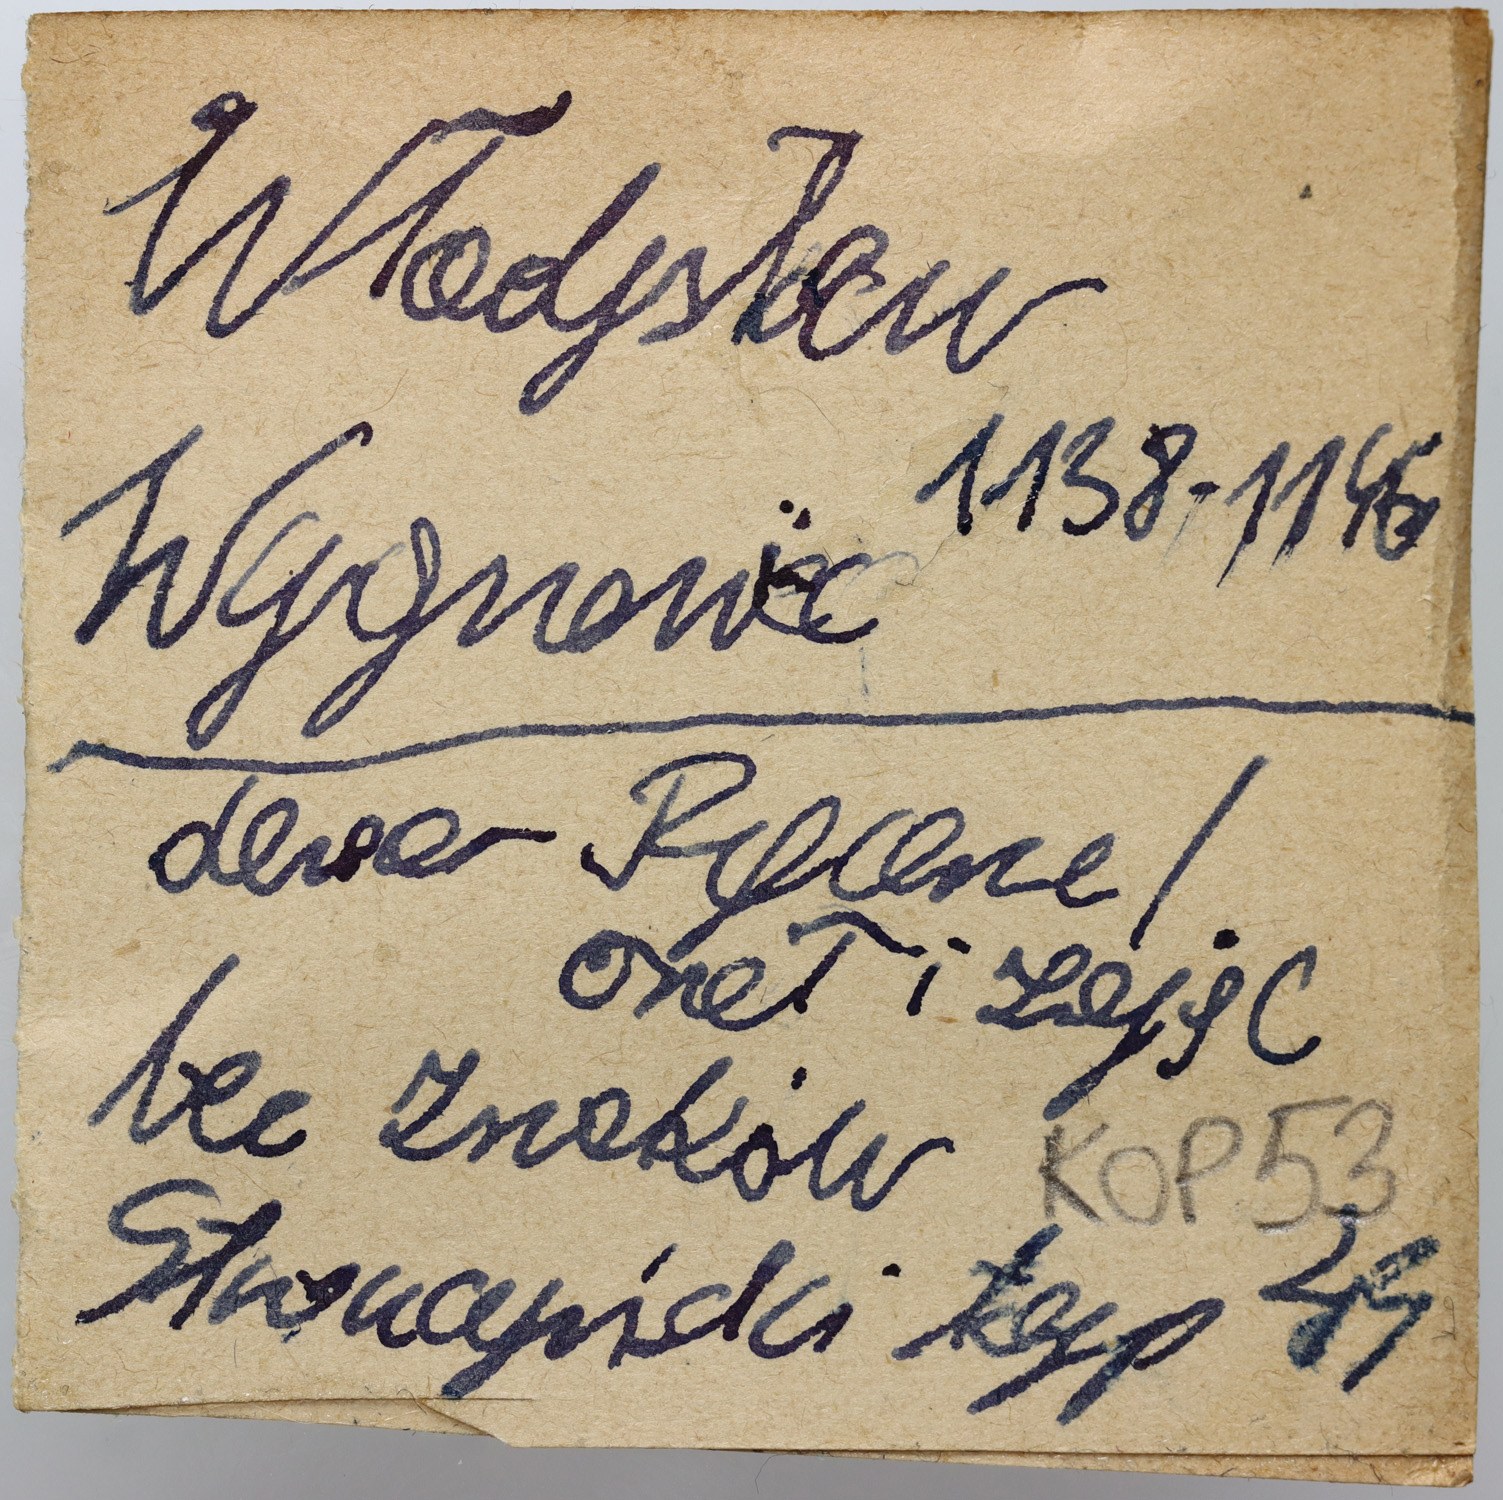 Władysław
Wygnaniec 1138-1146
denar Rycerz /
orzeł i zając
bez znaków
KOP 53
Stronczyński typ